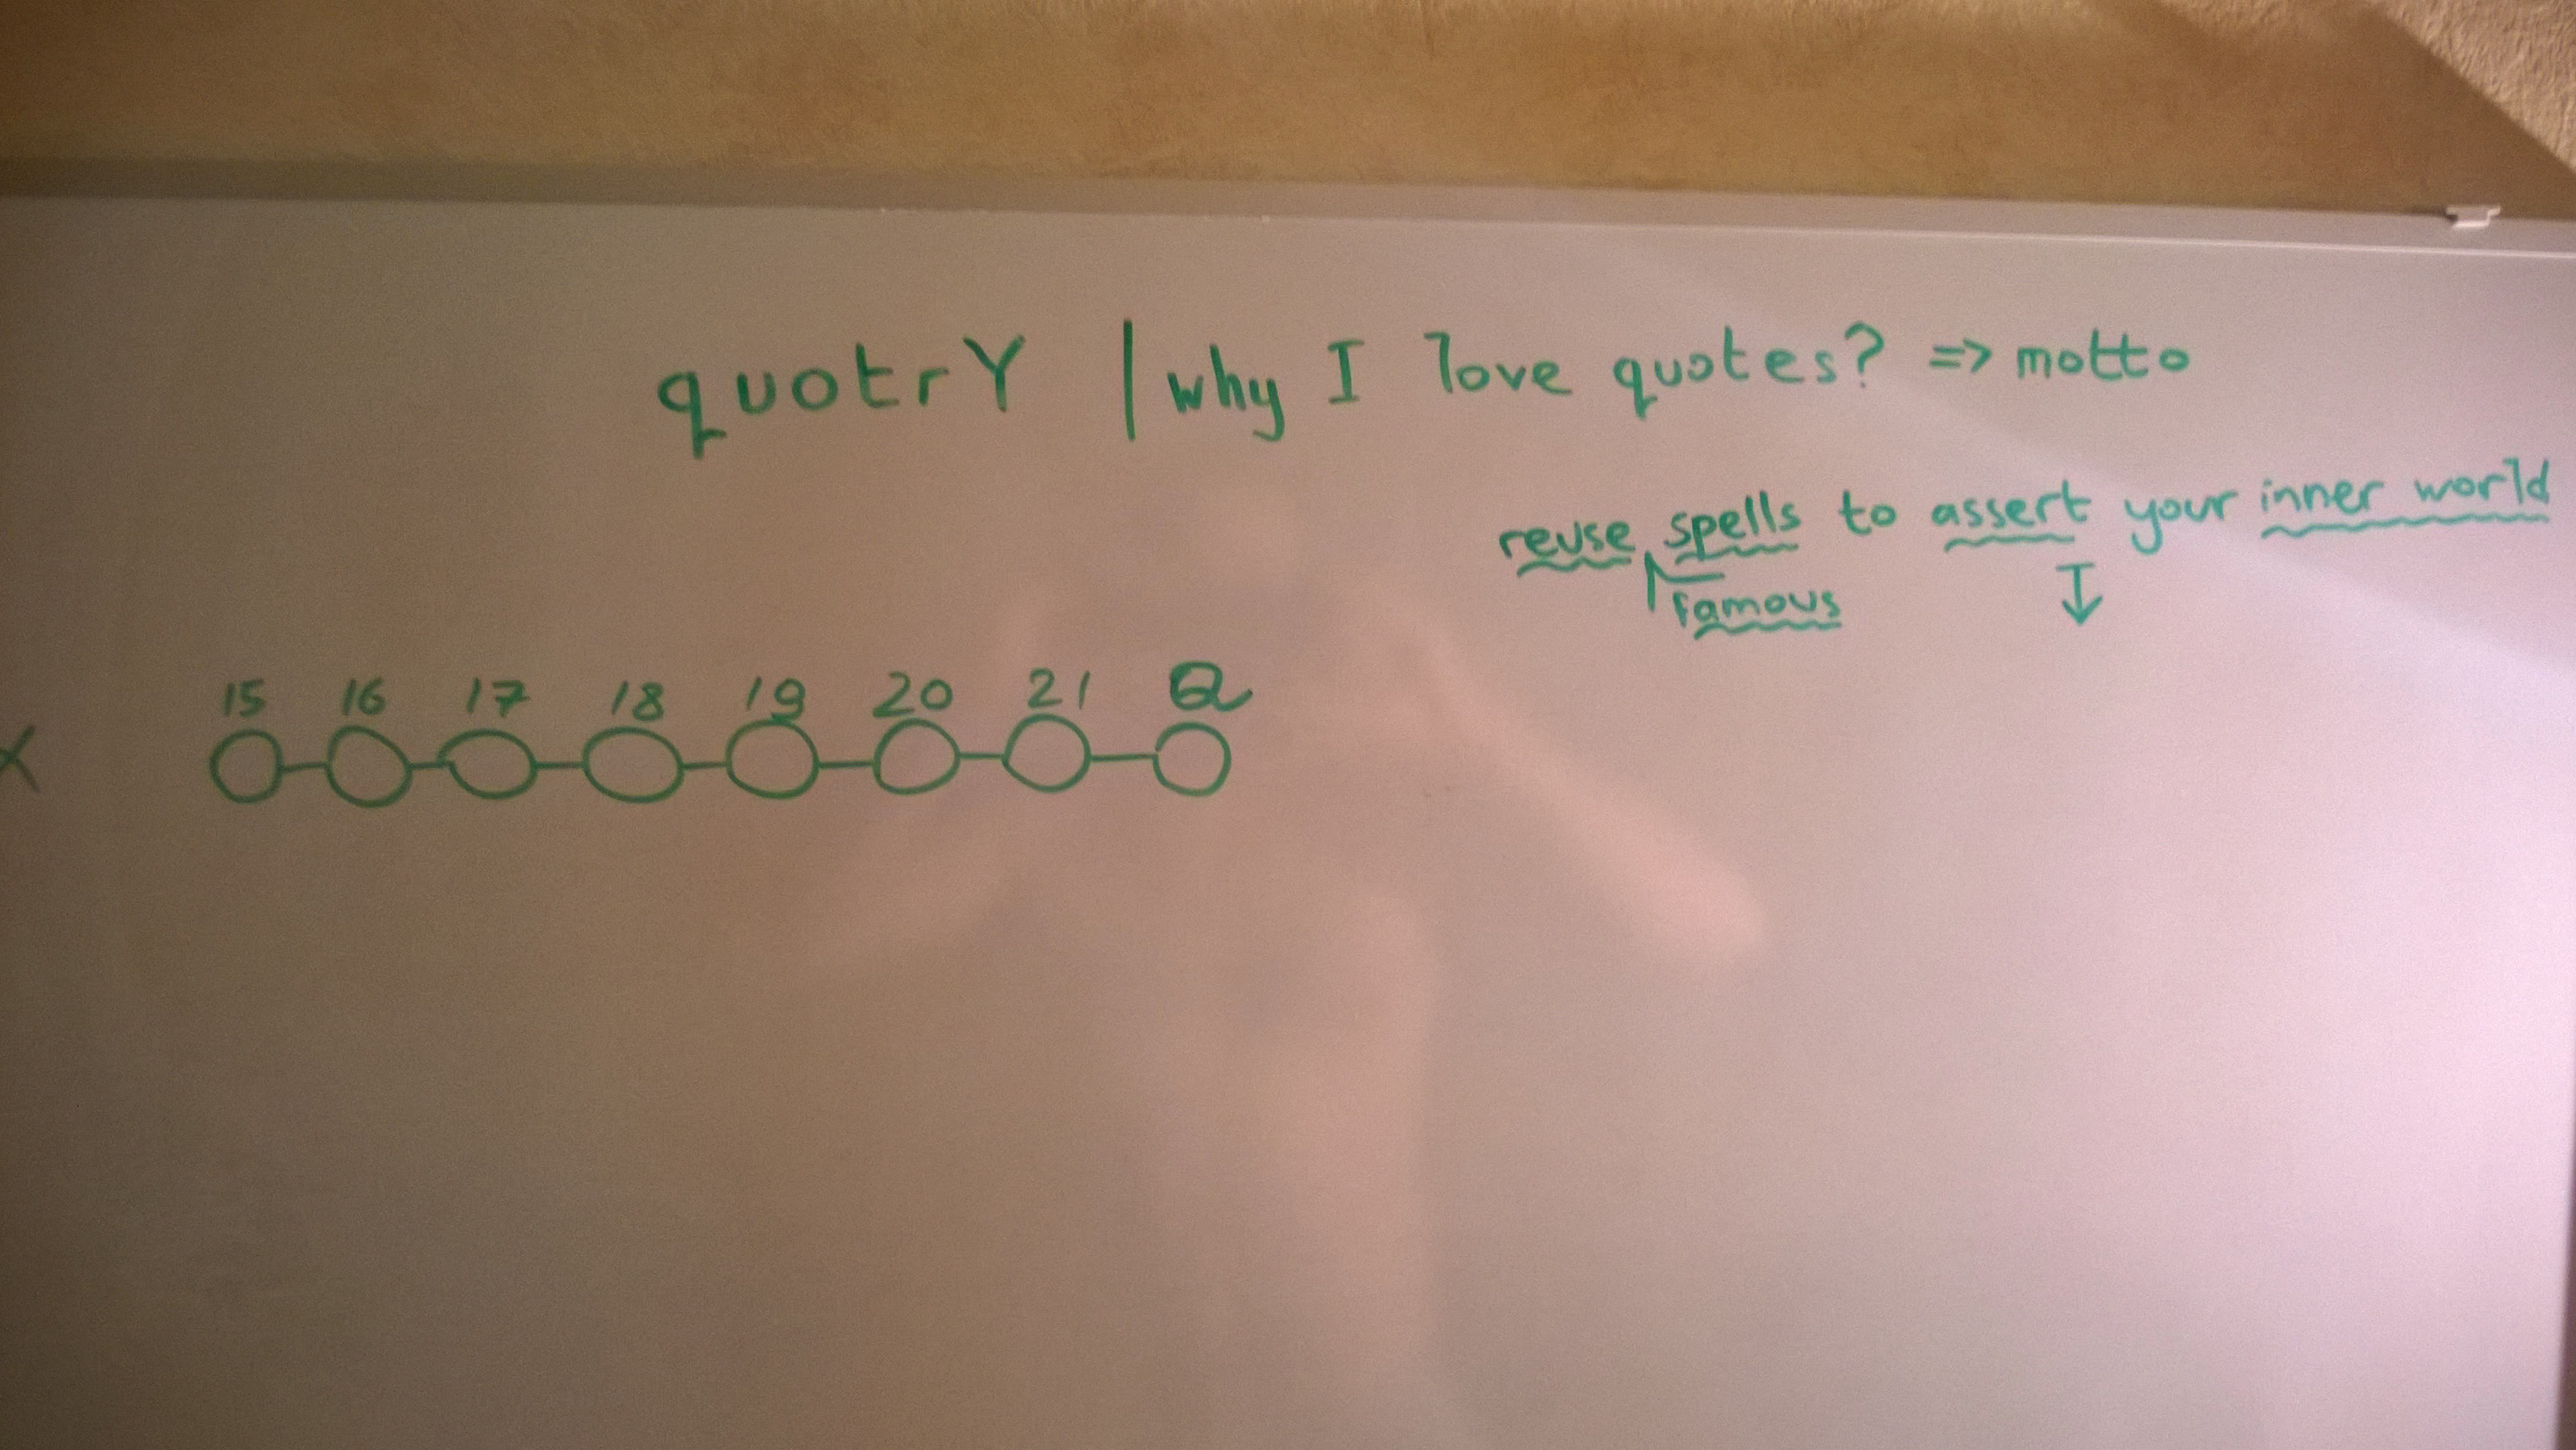 quotrY | why I love quotes? => motto
reuse spells to assert your inner world
famous
15 16 17 18 19 20 21 Q
X